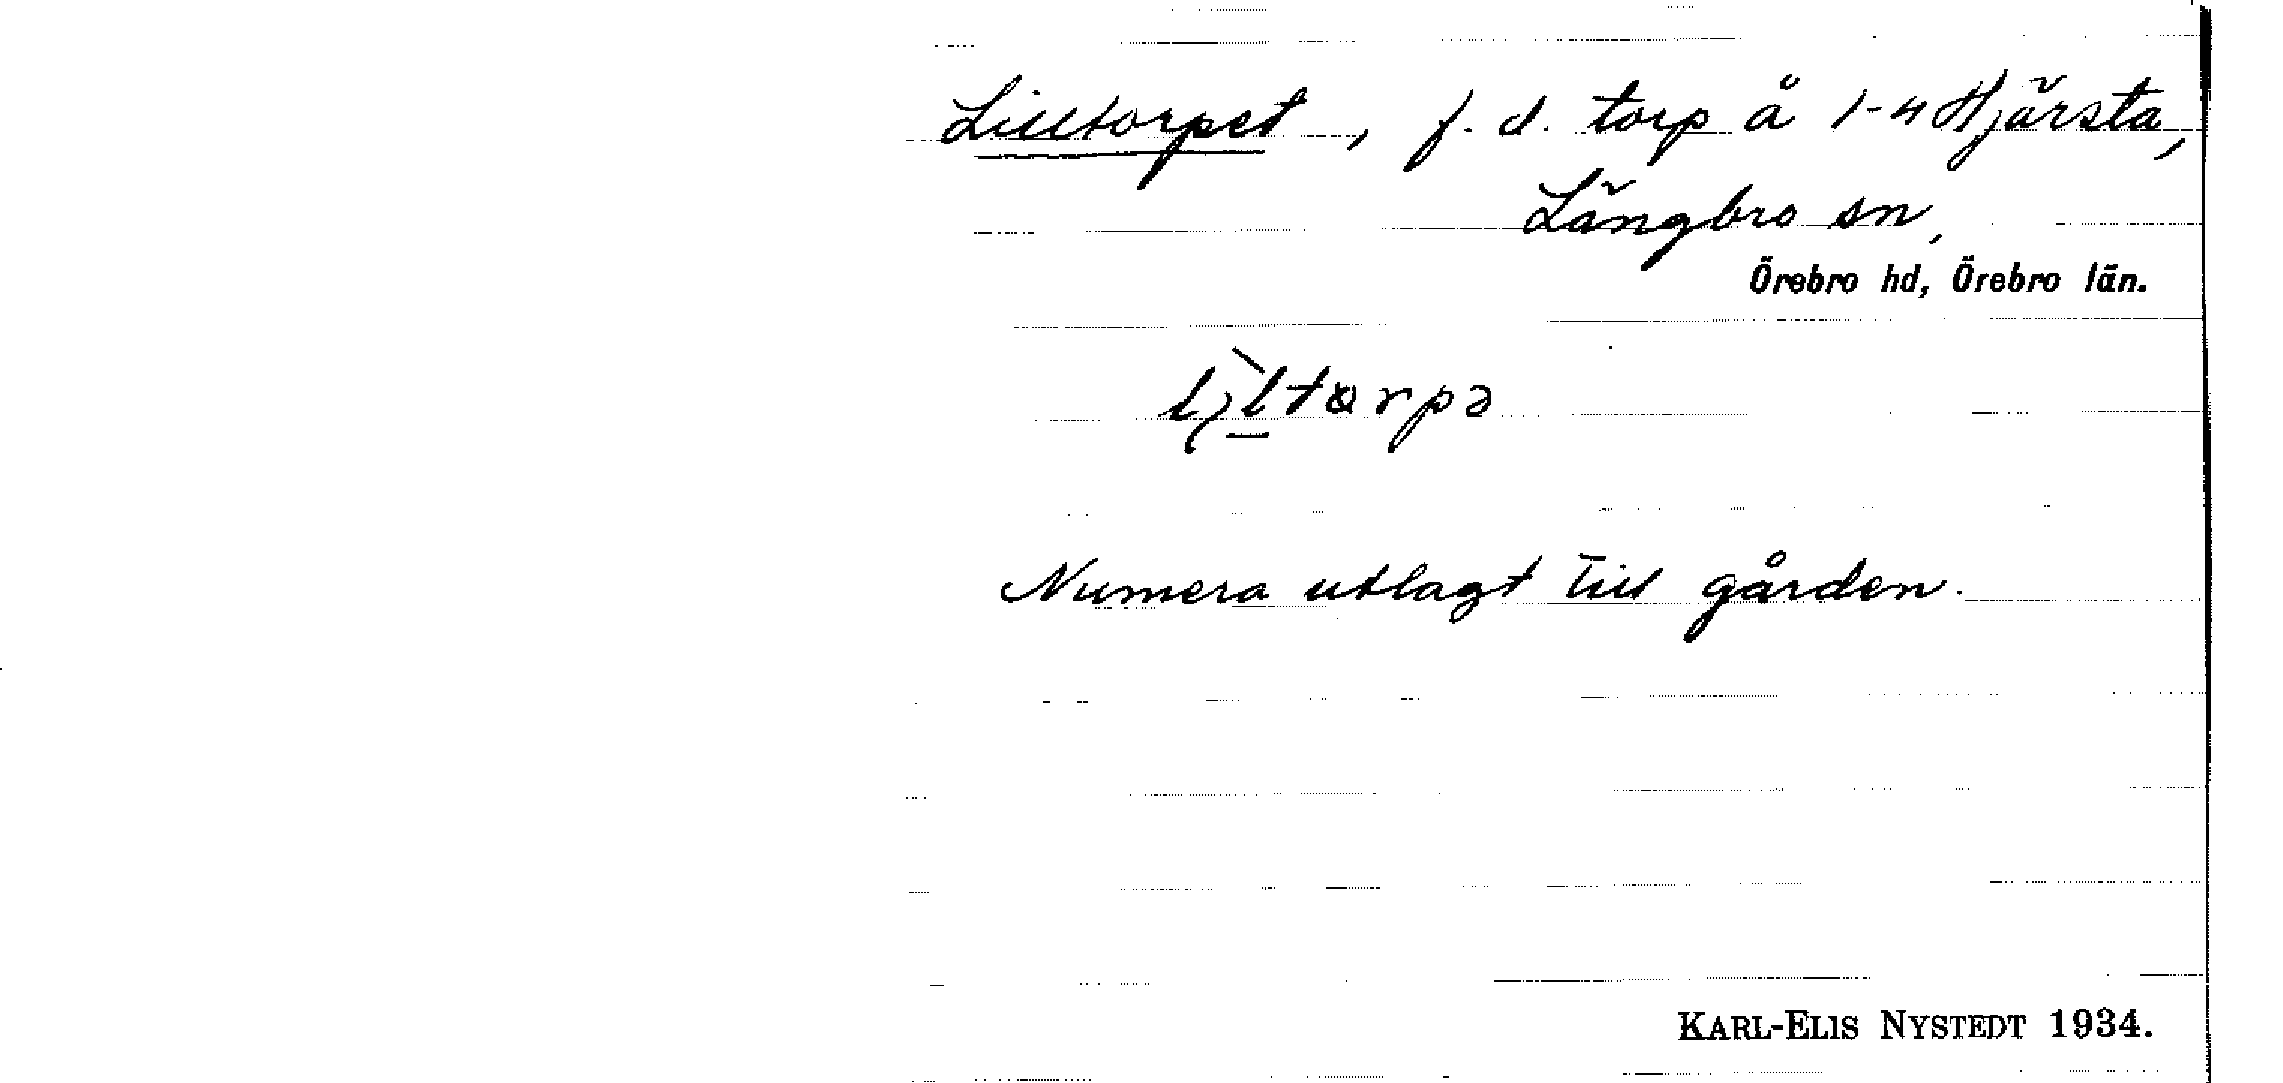 Lilltorpet, f. d. torp å 1-4 Hjärsta,
Längbro sn,
Örebro hd, Örebro län.
Numera utlagt till gärden.
KARL-ELIS NYSTEDT 1934.